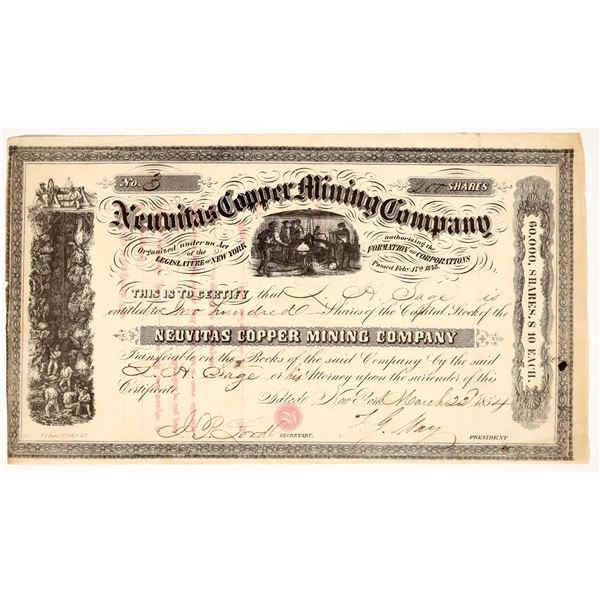 No. 3
200 SHARES
Neuvitas Copper Mining Company
Organized under an Act
of the
LEGISLATURE OF NEW YORK
authorizing the
FORMATION OF CORPORATIONS
Passed Feby. 17th 1848.
THIS IS TO CERTIFY that L. H. Sage is
entitled to Two hundred Shares of the Capital Stock of the
NEUVITAS COPPER MINING COMPANY
Transferable on the Books of the said Company by the said
L. H. Sage or his Attorney upon the surrender of this
Certificate.
Dated New York March 23 1854
SECRETARY.
F. G. May
PRESIDENT
60,000, SHARES. $ 10 EACH.